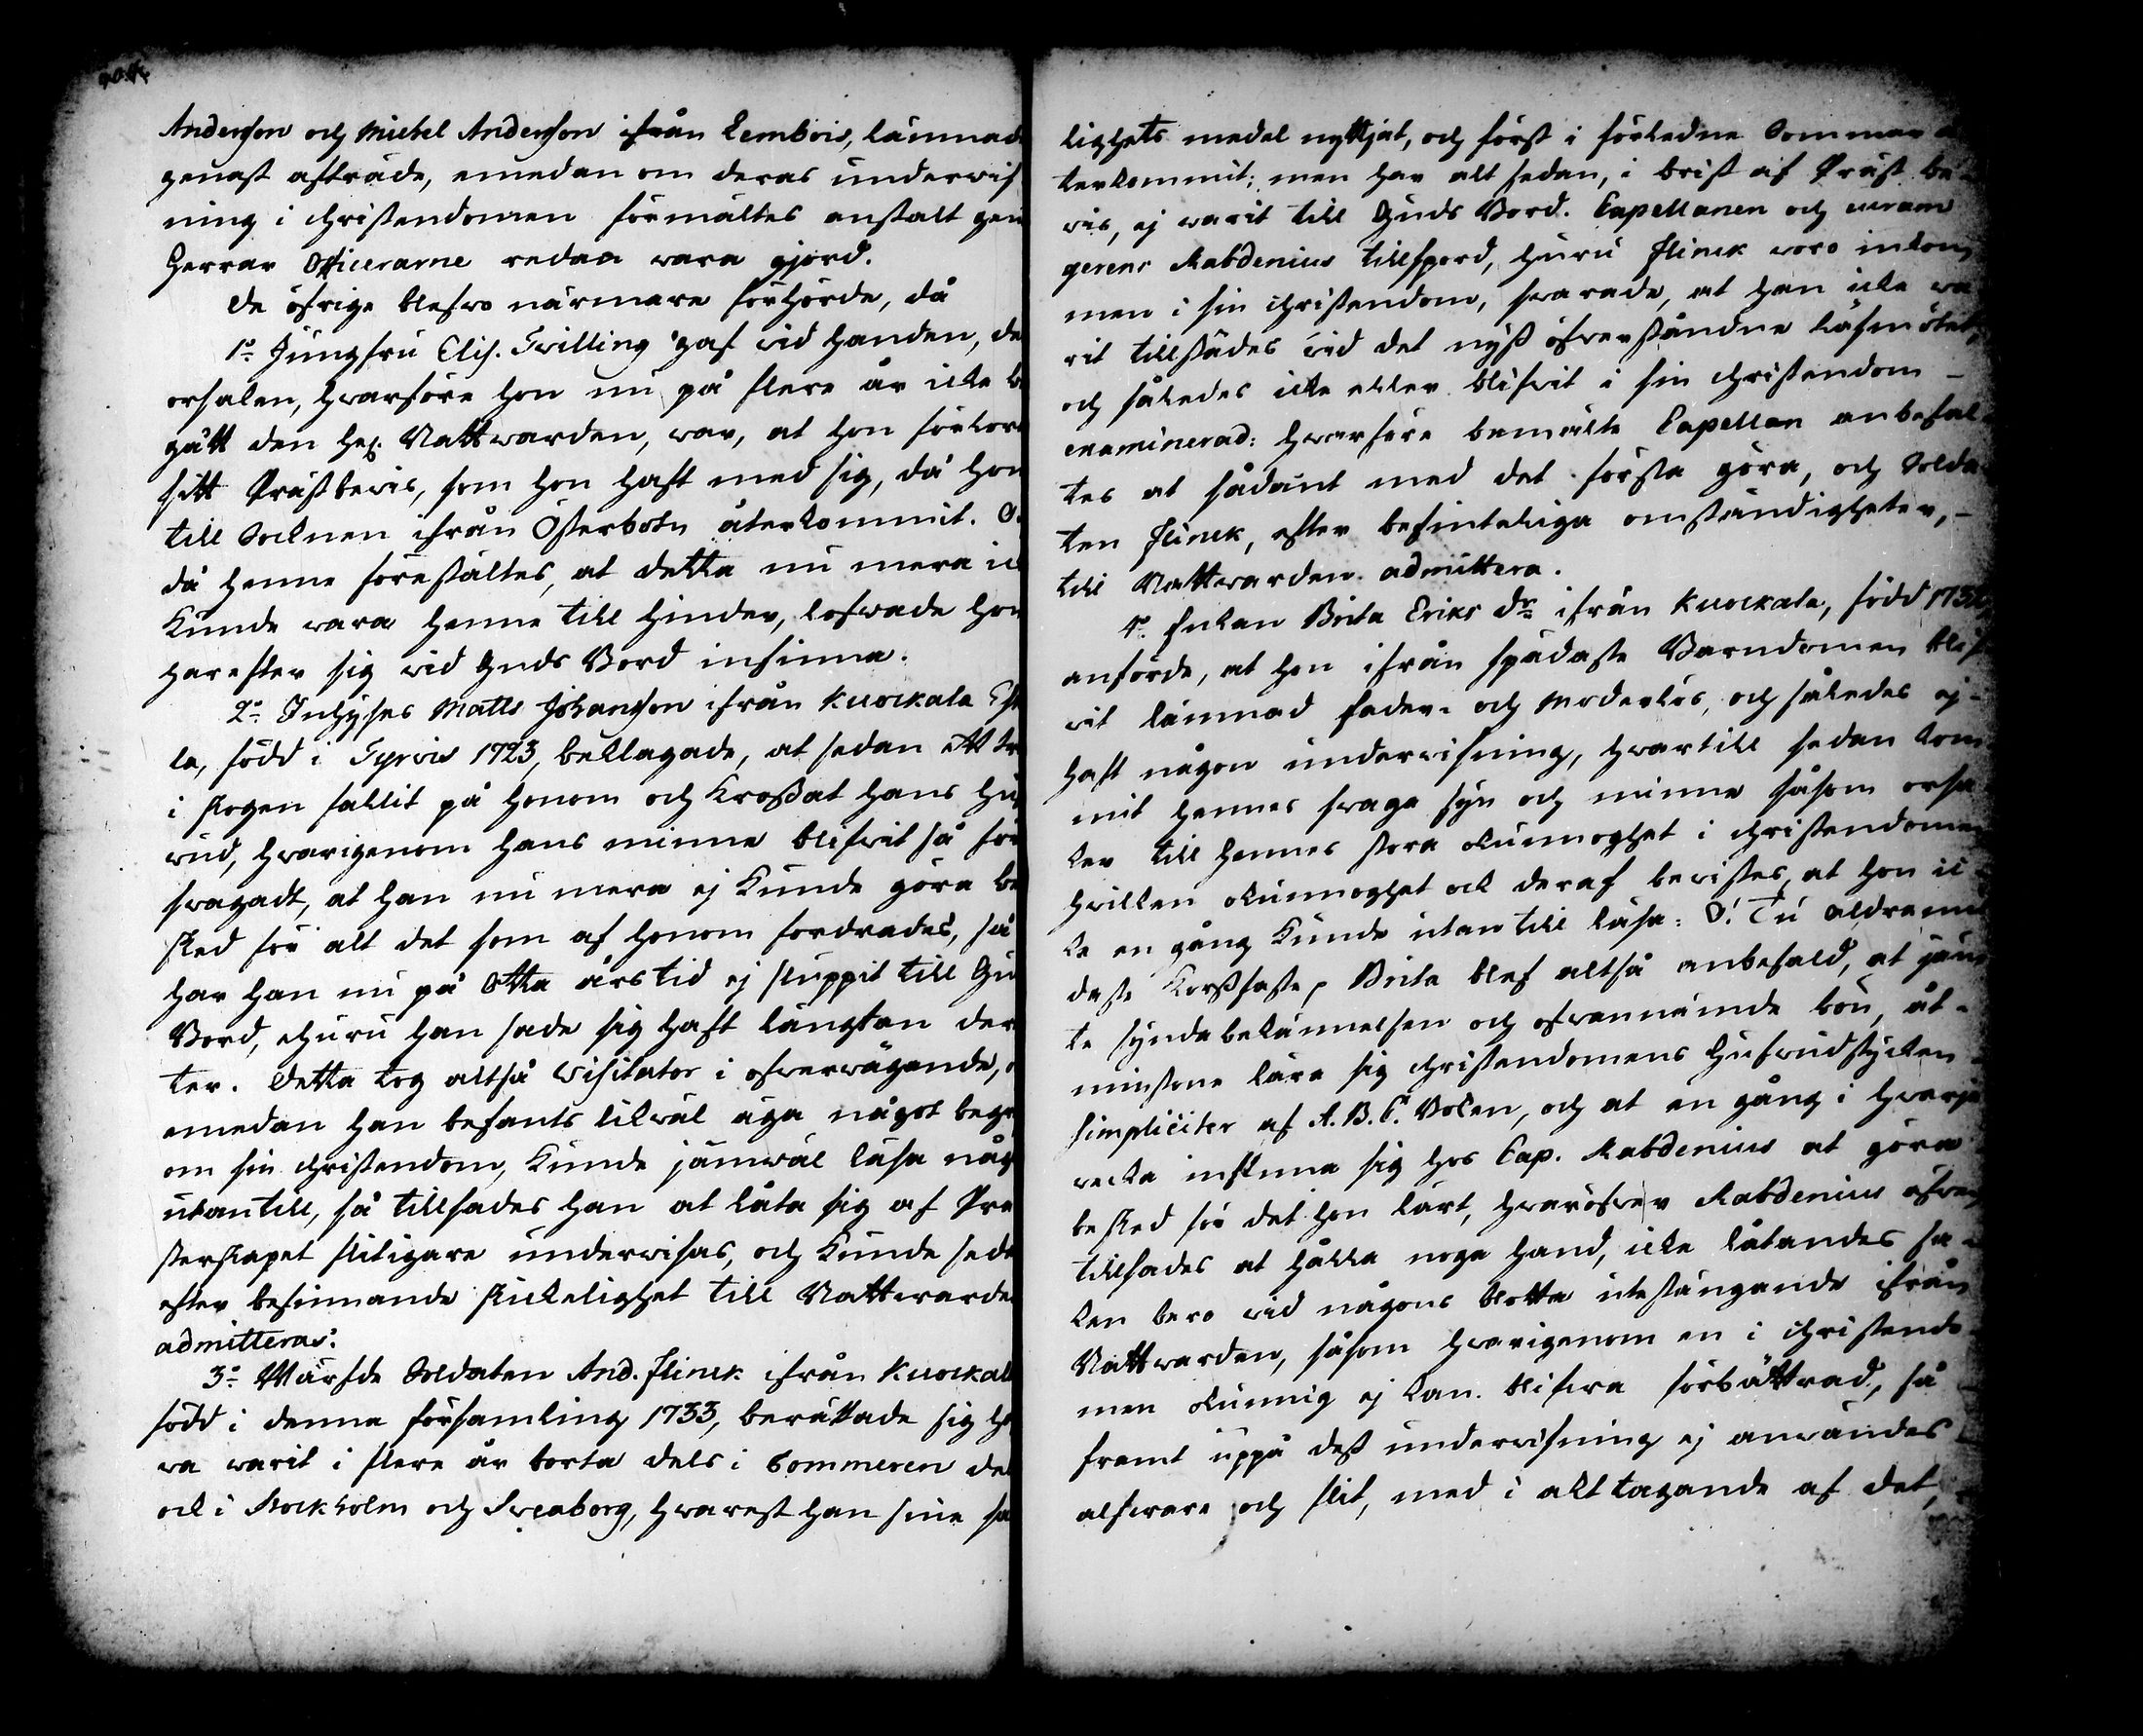 Anderson och Michel Anderson ifrån Lembois, lämnade
genast afträde, emedan om deras underwis
ning i christendomen förmältes anstalt gen
Herrar Officerarne redan wara gjord.
De öfrige blefwo närmare förhörde, då
1:o Jungfru Elis. Twilling gaf wid handen, de
orsaken, hwarföre hon nu på flere år icke be
gått den Hel. Nattwarden, war, at hon förlorat
sitt Prästbewis, som hon haft med sig, då hon
till Socknen ifrån Österbotn återkommit. O
då henne förestältes, at detta nu mera ic
kunde wara henne till hinder, lofwade hon
härefter sig wid Guds Bord infinna.
2:o Inhyses Matts Johanson ifrån Kuockala
la, född i Tyrvis 1723, beklagade, at sedan ett trä
i skogen fallit på honom och krossat hans huf
wud, hwarigenom hans minne blifwit så för
swagadt, at han nu mera ej kunde göra be
sked för alt det som af honom fordrades, så
har han nu på otta års tid ej sluppit till Gu
Bord, ehuru han sade sig haft längtan der
ter. Detta tog altså Visitator i öfwerwägande,
emedan han befants likwäl äga något begr
om sin christendom, kunde jämwäl läsa någ
utantill, så tillsades han at låta sig af Pre
sterskapet flitigare underwisas, och kunde seda
efter befinnande skickelighet till Nattwarde
admitteras.
3:o Wärfde Soldaten And. Flinck ifrån Kuockala
född i denna församling 1733, berättade sig ha
wa warit i flere år borta dels i Pommeren de
ock i Stockholm och Sveaborg, hwarest han sine sa
lighets medel nyttjat, och först i förledne Sommar å
terkommit; men har alt sedan, i brist af Präst be-
wis, ej warit till Guds Bord. Capellanen och curam
gerens Rabdenius tillspord, huru Flinck woro inkom
men i sin christendom, swarade, at han icke wa
rit tillstädes wid det nyss öfwerståndne läsmötet,
och således icke eller blifwit i sin christendom -
examinerad: hwarföre bemälte Capellan anbefal-
tes at sådant med det första göra, och Solda-
ten Flinck, efter befinteliga omständigheter, -
till Nattwarden admittera.
4:o Enkan Brita Eriks dr ifrån Kuockala, född
anförde, at hon ifrån spädaste Barndomen blif
wit lämnad fader- och moderlös, och således ej -
haft någon underwisning, hwartill sedan kom
mit hennes swaga syn och minne såsom orsa
ker till hennes stora okunnoghet i christendomen
hwilken okunnoghet ock deraf bewistes, at hon ic
ke en gång kunde utantill läsa: O! Tu aldramil
daste Korssfäste, Brita blef altså anbefald, at jäm
te syndabekännelsen och ofwannämnde bön, åt-
minstone lära sig christendomens hufwudstycken
simpliciter af A. B. C. Boken, och at en gång i hwarje
wecka infinna sig hos Cap. Rabdenius at göra
besked för det hon lärt, hwaröfwer Rabdenius äfwen
tillsades at hålla noga hand, icke låtandes sa-
ken bero wid någons blotta utestängande ifrån
Nattwarden, såsom hwarigenom en i christendo-
men okunnig ej kan blifwa förbättrad, så
framt uppå dess underwisning ej anwändes
alfwar och flit, med i akt tagande af det,